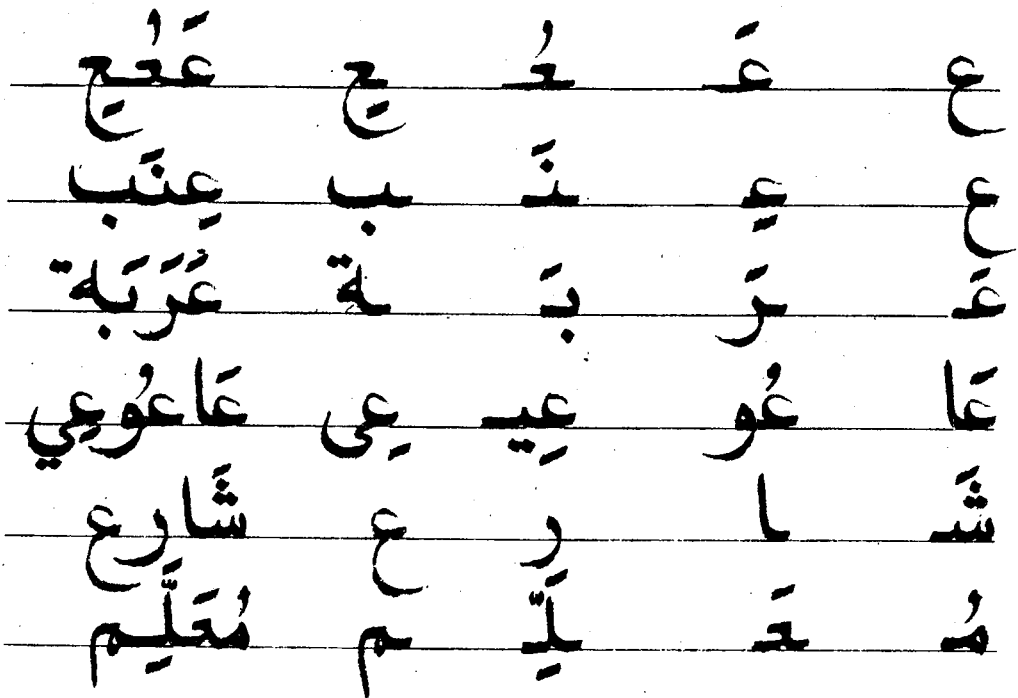 ع عَـ ـعُـ ـعِ عَعُعِ
ع عِـ ـنَـ ـب عِنَب
عَـ ـرَ بَـ ـة عَرَبَة
عَا عُو عِيـ عِى عَاعُوعِي
شَـ ـا ر ع شَارع
مُـ ـعَـ ـلَِّـ ـم مُعَلَِّم